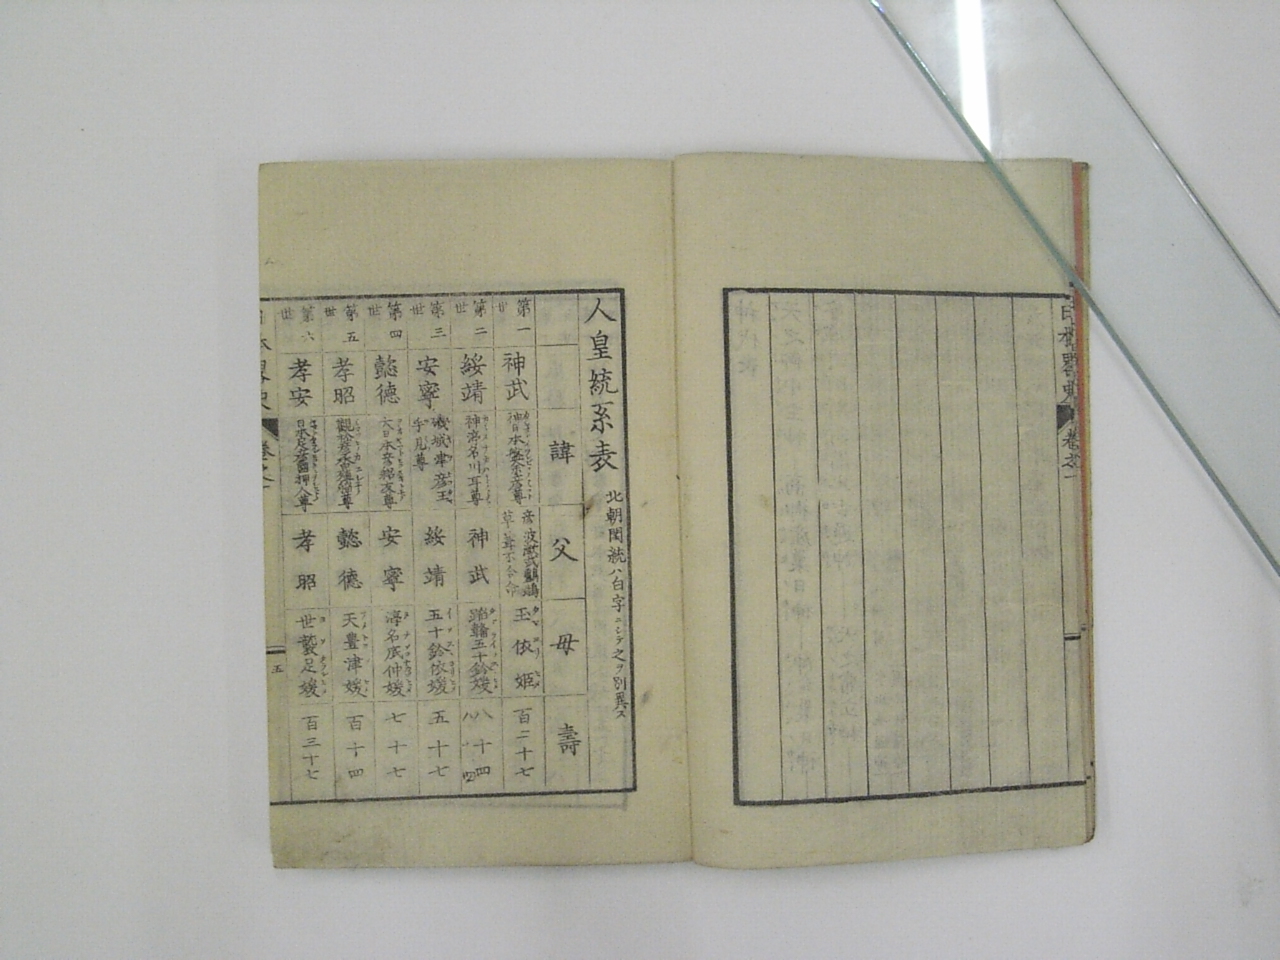 日本畧史 卷之一
人皇統系表 北朝閏統ハ白字ニシテ之ヲ別異ス
諱 父 母 壽
第一世 神武 神日本磐余彦尊 彦波瀲武鸕鷀草葺不合命 玉依姫 百二十七
第二世 綏靖 神渟名川耳尊 神武 蹈鞴五十鈴媛 八十四
第三世 安寧 磯城津彦玉手見尊 綏靖 五十鈴依媛 五十七
第四世 懿德 大日本彦耜友尊 安寧 渟名底仲媛 七十七
第五世 孝昭 觀松彦香殖稻尊 懿德 天豊津媛 百十四
第六世 孝安 日本足彦國押人尊 孝昭 世襲足媛 百三十七
日本畧史 卷之一 五